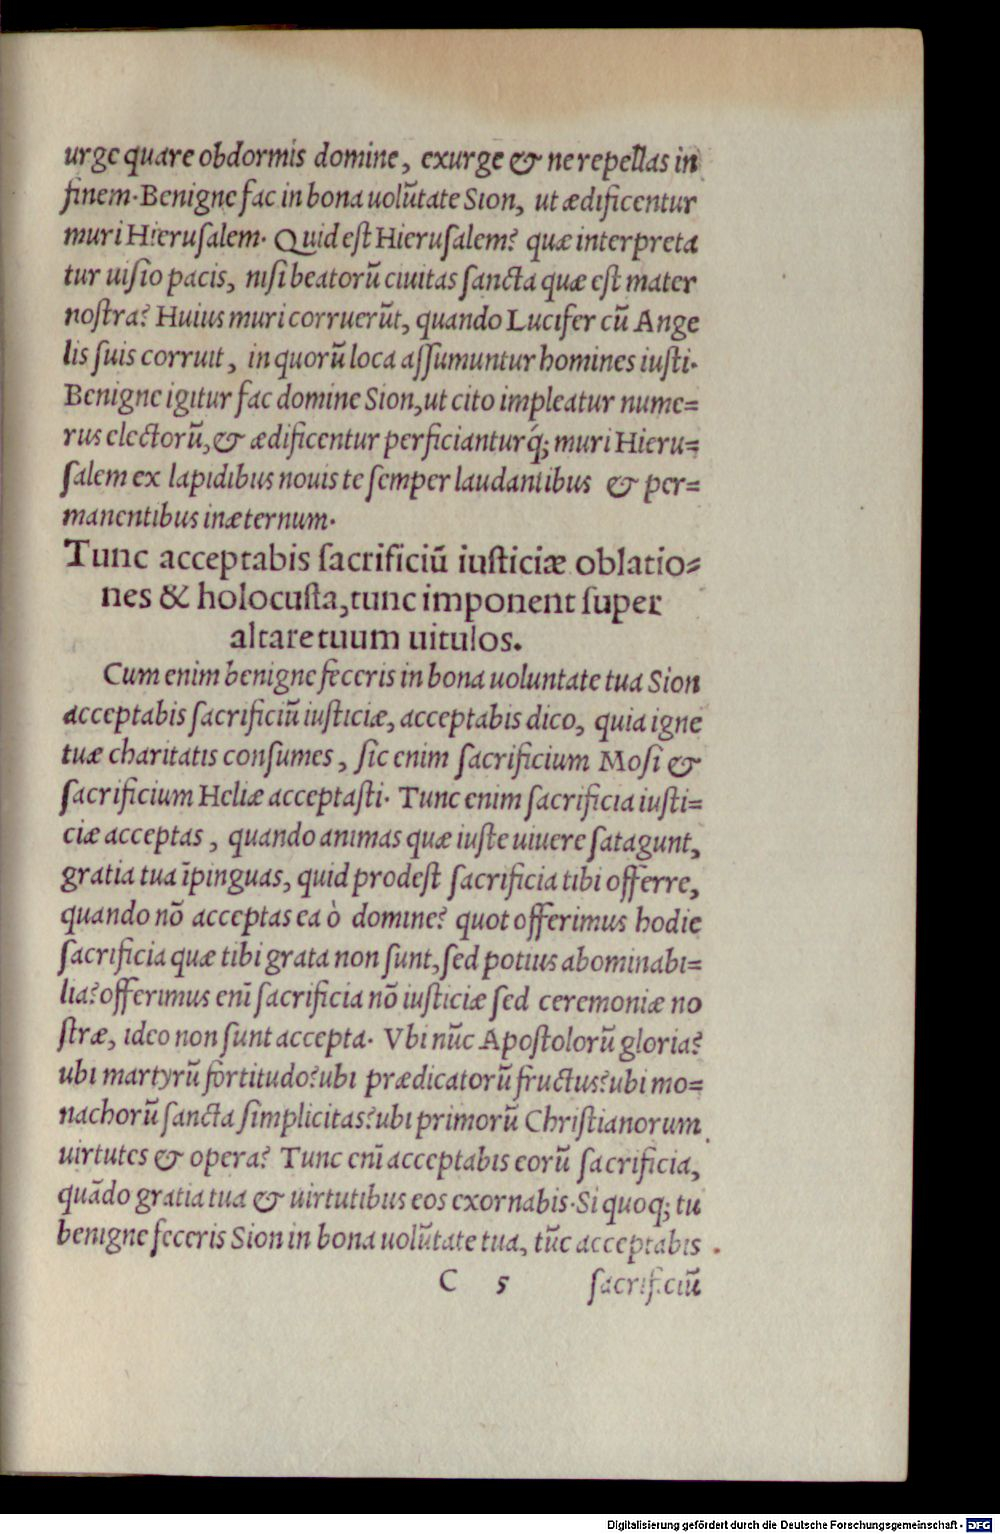 urge quare obdormis domine, exurge & ne repellas in
finem. Benigne fac in bona uolũtate Sion, ut ædificentur
muri Hieruſalem. Quid eſt Hieruſalem? quæ interpreta
tur uiſio pacis, niſi beatorũ ciuitas ſancta quæ eſt mater
noſtra? Huius muri corruerũt, quando Lucifer cũ Ange
lis ſuis corruit, in quorũ loca aſſumuntur homines iuſti.
Benigne igitur fac domine Sion, ut cito impleatur nume=
rus electorũ, & ædificentur perficianturq́; muri Hieru=
ſalem ex lapidibus nouis te ſemper laudantibus & per=
manentibus inæternum.
Tunc acceptabis ſacrificiũ iuſticiæ oblatio=
nes & holocuſta, tunc imponent ſuper
altare tuum uitulos.
Cum enim benigne feceris in bona uoluntate tua Sion
acceptabis ſacrificiũ iuſticiæ, acceptabis dico, quia igne
tuæ charitatis conſumes, ſic enim ſacrificium Moſi &
ſacrificium Heliæ acceptaſti. Tunc enim ſacrificia iuſti=
ciæ acceptas, quando animas quæ iuſte uiuere ſatagunt,
gratia tua īpinguas, quid prodeſt ſacrificia tibi offerre,
quando nõ acceptas ea ò domine? quot offerimus hodie
ſacrificia quæ tibi grata non ſunt, ſed potius abominabi=
lia? offerimus enī ſacrificia nõ iuſticiæ ſed ceremoniæ no
ſtræ, ideo non ſunt accepta. Vbi nũc Apoſtolorũ gloria?
ubi martyrũ fortitudo? ubi prædicatorũ fructus? ubi mo=
nachorũ ſancta ſimplicitas? ubi primorũ Chriſtianorum
uirtutes & opera? Tunc enī acceptabis eorũ ſacrificia,
quãdo gratia tua & uirtutibus eos exornabis. Si quoq; tu
benigne feceris Sion in bona uolũtate tua, tũc acceptabis
C 5 ſacrificiũ
Digitalisierung gefördert durch die Deutsche Forschungsgemeinschaft - DFG